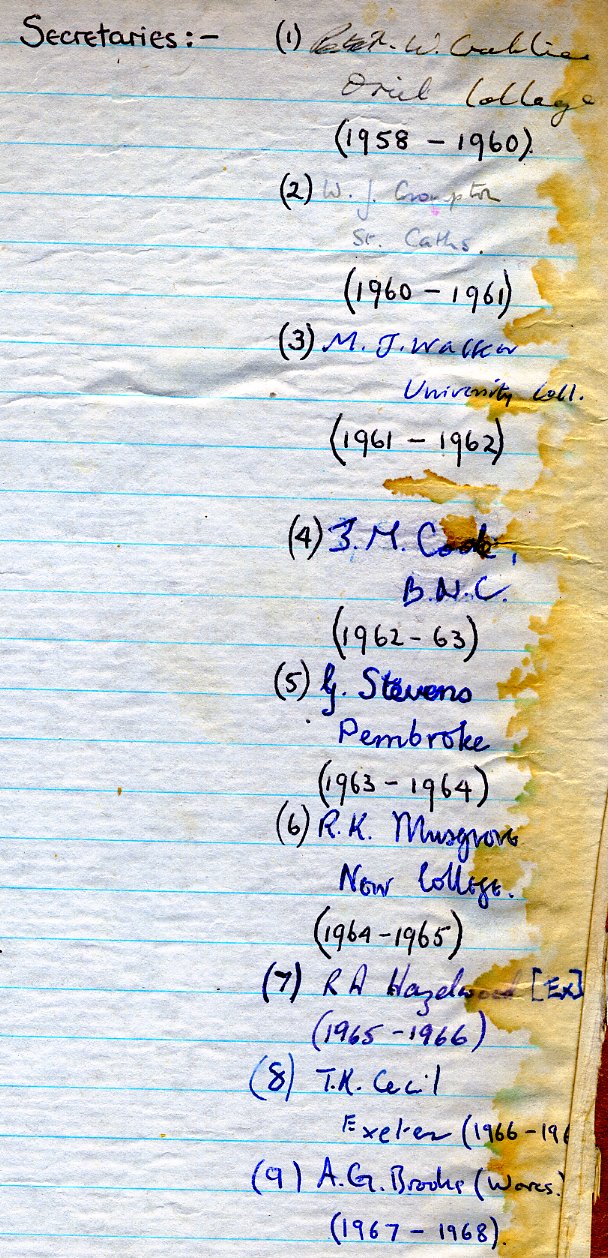 Secretaries:- (1) W.
Oriel College
(1958 - 1960).
(2) W. J. Crompton
St. Caths.
(1960 - 1961)
(3) M. J. Walker
University Coll.
(1961 - 1962)
(4) J. M. Cook,
B.N.C.
(1962 - 63)
(5) G. Stevens
Pembroke
(1963 - 1964)
(6) R. K. Musgrove
New College.
(1964-1965)
(7) R A Hazelwood [Ex]
(1965 - 1966)
(8) T.K. Cecil
Exeter (1966 - 196
(9) A.G. Brooke (Worcs.)
(1967 - 1968).